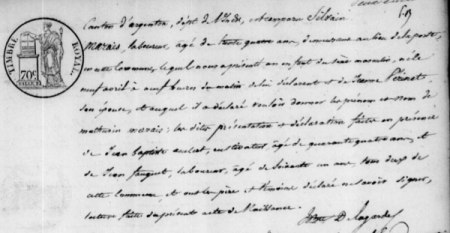 TIMBRE ROYAL
70c
canton d'argenton, dépt de l'Indre, est comparu Silvain
Marais, laboureur, agé de trente quatre ans, demeurant au lieu de la poste,
en cette commune, lequel nous a présenté un enfant du sexe masculin, né le
neuf avril à neuf heures du matin de lui déclarant et de Jeanne Périnet
son épouse, et auquel il a déclaré vouloir donner les prénom et nom de
mathurin marais; les dites présentation et déclaration faites en présence
de Jean baptiste aulat, cultivateur, agé de quarante quatre ans, et
de Jean laboureur, agé de soixante un ans, tous deux de
cette commune, et ont les père et témoins déclaré ne savoir signer,
lecture faite du présent acte de Naissance.
D. Lagarde